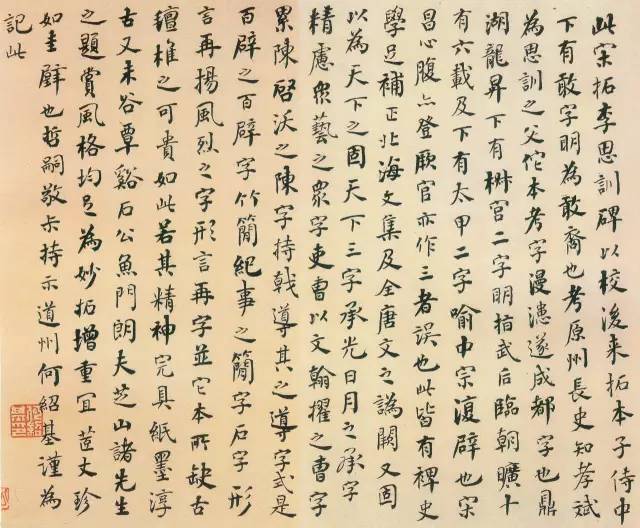 此宋拓李思訓碑以校後来拓本子侍中
下有敢字明為敢裔也考原州長史知孝斌
為思訓之父佗本考字漫漶遂成都字也鼎
湖龍昇下有椒宫二字明指武后臨朝曠十
有六載及下有太甲二字喻中宗復辟也宋
昌心腹亦登厥官亦作三者误也此皆有裨史
學足補正北海文集及全唐文之譌闕又固
以為天下之固天下三字承光日月之承字
精慮眾藝之眾字吏曹以文翰擢之曹字
累陳啓沃之陳字持戟導其之導字式是
百辟之百辟字竹簡紀事之簡字石字形
言再揚風烈之字形言再字並它本所缺古
氊椎之可貴如此若其精神完具紙墨淳
古又未谷覃谿石公魚門朗夫芝山諸先生
之題賞風格均足為妙拓增重宜茝丈珍
如圭璧也哲嗣敬未持示道州何紹基謹為
記此